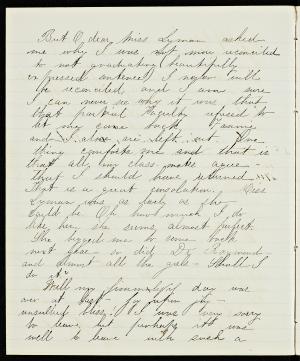 But O, dear, Miss Lyman asked
me why I was not more reconciled
to not graduating (beautifully
expressed sentence) I never could
be reconciled and I am sure
I can never see why it was that
that partial Faculty refused to
let me come back
and I alone are left out. One
thing comforts me and that is
that all my class mates agree
that I should have returned
That is a great consolation. Miss
Lyman was as lovely as she
could be. Oh how much I do
like her, she seems almost perfect.
She begged me to come back
next year so did Dr. Raymond
and almost all the girls. Shall I
do it?
Well my day was
over at last
bliss. I was very sorry
to leave, but perhaps it was
well to leave with such a